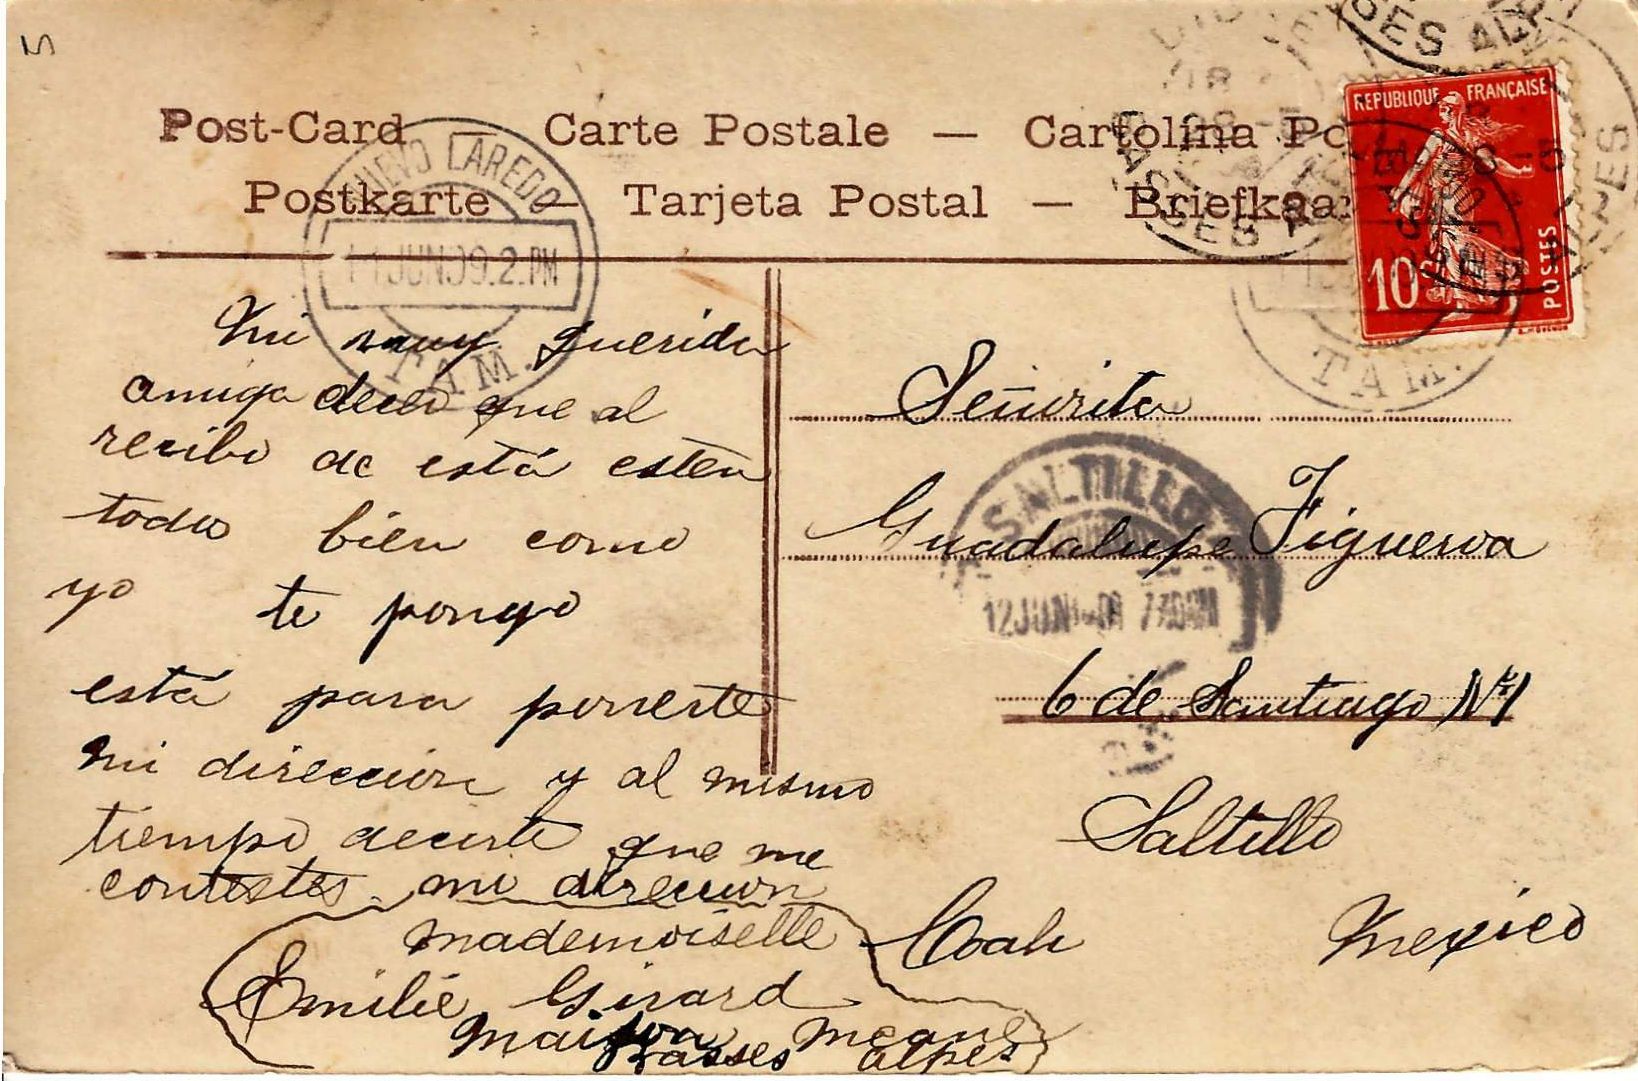 Post-Card — Carte Postale — Cartolina Po
Postkarte — Tarjeta Postal — Briefkaar
REPUBLIQUE FRANÇAISE
10c POSTES
NUEVO LAREDO
11 JUN 09. 2. PM
TAM.
TAM.
BASSES ALPES
Mi muy querida
amiga deceo que al
recibo de está esten
todos bien como
yo te pongo
está para ponerte
mi direccion y al mismo
tiempo decirte que me
contestes. mi direccion
mademoiselle
Emilie Girard
maison meane
Basses alpes
Señorita
Guadalupe Figueroa
SALTILLO
12 JUN 7 30 AM
6 de Santiago Nº 1
Saltillo
Coah Mexico